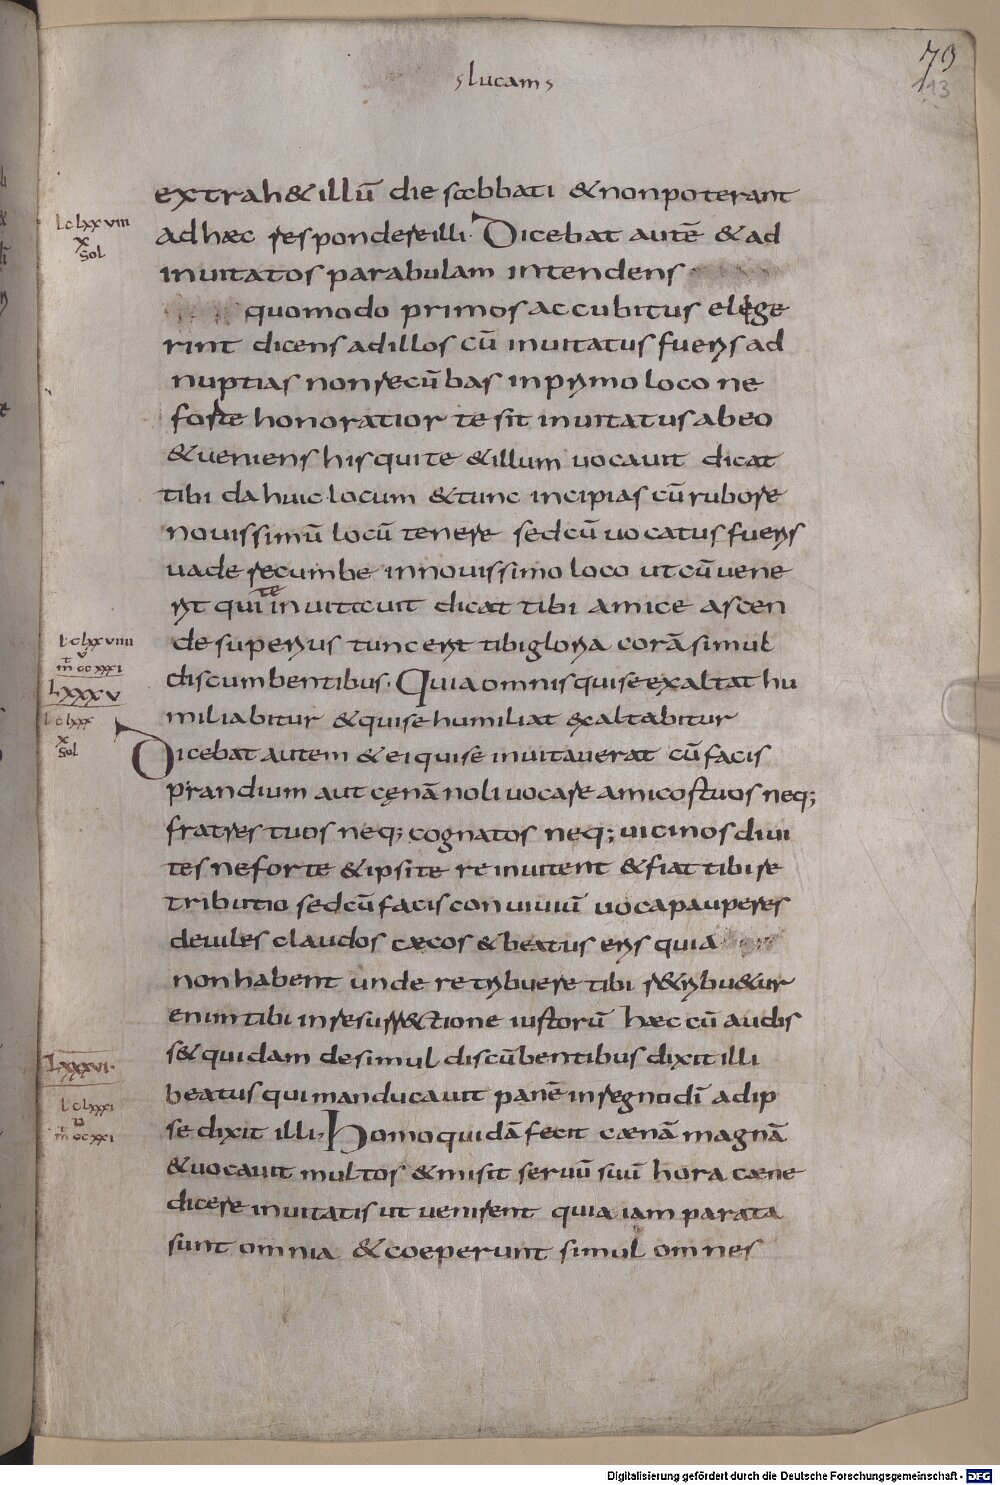 lucam
79
113
extrah&illū die sabbati &nonpoterant
Lc lxxviii
ad hæc respondere illi· Dicebat autē & ad
x
sol
inuitatos parabulam intendens
quomodo primos accubitus elege
rint dicens ad illos cū inuitatus fueris ad
nuptias non recūbas in primo loco ne
forte honoratior te sit inuitatus ab eo
& ueniens his qui te & illum uocauit dicat
tibi da huic locum & tunc incipias cū rubore
nouissimū locū tenere sed cū uocatus fueris
uade recumbe in nouissimo loco ut cū uene
rit qui te inuitauit dicat tibi amice ascen
Lc lxxviiii
v
m̄ ccxxxi
de superius tunc erit tibi gloria corā simul
LXXXV
discumbentibus· Quia omnis qui se exaltat hu
Lc lxxx
x
sol
miliabitur & qui se humiliat exaltabitur
Dicebat autem & ei qui se inuitauerat cū facis
prandium aut cęnā noli uocare amicos tuos neq;
fratres tuos neq; cognatos neq; uicinos diui
tes ne forte & ipsi te reinuitent & fiat tibi re
tributio sed cū facis conuiuiū uoca pauperes
deuiles claudos cæcos & beatus eris quia
non habent unde retribuere tibi r&ribu&ur
enim tibi in resurr&tione iustorū hæc cū audis
s& quidam de simul discūbentibus dixit illi
LXXXVI·
beatus qui manducauit panē in regno dī ad ip
Lc lxxxi
v
m̄ ccxxi
se dixit illi, Homo quidā fecit cænā magnā
& uocauit multos & misit seruū suū hora cæne
dicere inuitatis ut uenirent quia iam parata
sunt omnia & coeperunt simul omnes
Digitalisierung gefördert durch die Deutsche Forschungsgemeinschaft - DFG